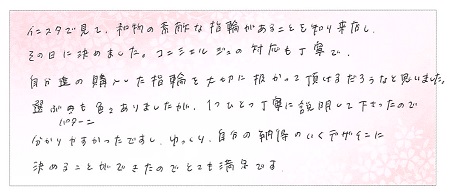 インスタで見て、和物の素敵な指輪があることを知り来店し、
その日に決めました。コンシェルジュの対応も丁寧で、
自分達の購入した指輪を大切に扱かって頂けるだろうなと思いました。
選ぶのも色々ありましたが、1つひとつ丁寧に説明して下さったので
パターン
分かりやすかったですし、ゆっくり、自分の納得のいくデザインに
決めることができたのでとても満足です。